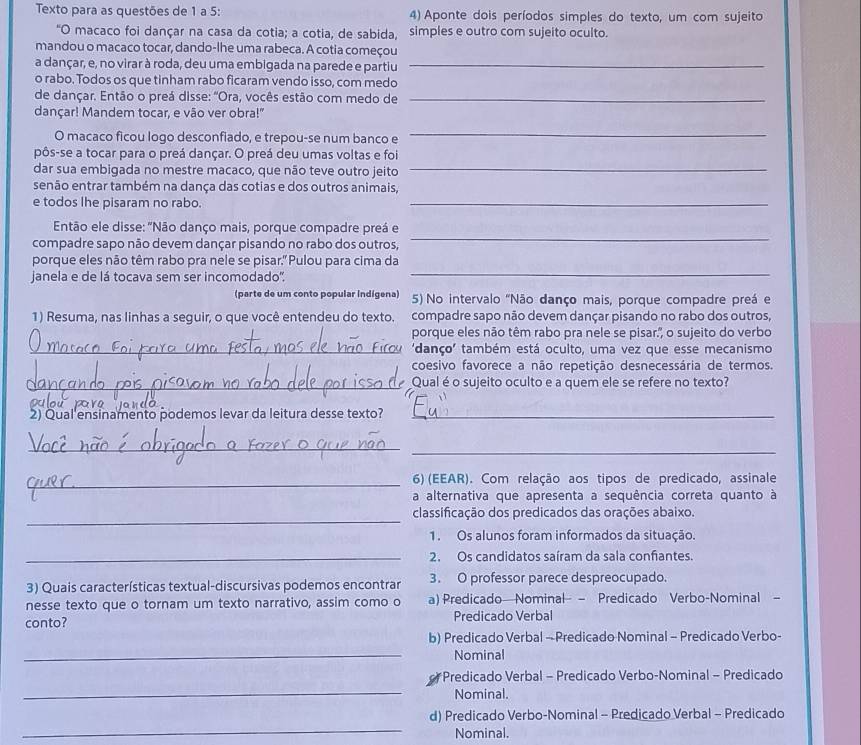 Texto para as questões de 1 a 5:
"O macaco foi dançar na casa da cotia; a cotia, de sabida,
mandou o macaco tocar, dando-lhe uma rabeca. A cotia começou
a dançar, e, no virar à roda, deu uma embigada na parede e partiu
o rabo. Todos os que tinham rabo ficaram vendo isso, com medo
de dançar. Então o preá disse: "Ora, vocês estão com medo de
dançar! Mandem tocar, e vão ver obra!"
O macaco ficou logo desconfiado, e trepou-se num banco e
pôs-se a tocar para o preá dançar. O preá deu umas voltas e foi
dar sua embigada no mestre macaco, que não teve outro jeito
senão entrar também na dança das cotias e dos outros animais,
e todos lhe pisaram no rabo.
Então ele disse: "Não danço mais, porque compadre preá e
compadre sapo não devem dançar pisando no rabo dos outros,
porque eles não têm rabo pra nele se pisar." Pulou para cima da
janela e de lá tocava sem ser incomodado".
(parte de um conto popular indígena)
1) Resuma, nas linhas a seguir, o que você entendeu do texto.
O macaco foi para uma festa, mas ele não ficou
dançando pois pisavam no rabo dele por isso de
pulou para janda.
2) Qual ensinamento podemos levar da leitura desse texto?
Você não é obrigado a fazer o que não
quer.
3) Quais características textual-discursivas podemos encontrar
nesse texto que o tornam um texto narrativo, assim como o
conto?
4) Aponte dois períodos simples do texto, um com sujeito
simples e outro com sujeito oculto.
5) No intervalo "Não danço mais, porque compadre preá e
compadre sapo não devem dançar pisando no rabo dos outros,
porque eles não têm rabo pra nele se pisar.", o sujeito do verbo
'danço' também está oculto, uma vez que esse mecanismo
coesivo favorece a não repetição desnecessária de termos.
Qual é o sujeito oculto e a quem ele se refere no texto?
"Eu"
6) (EEAR). Com relação aos tipos de predicado, assinale
a alternativa que apresenta a sequência correta quanto à
classificação dos predicados das orações abaixo.
1. Os alunos foram informados da situação.
2. Os candidatos saíram da sala confiantes.
3. O professor parece despreocupado.
a) Predicado Nominal - Predicado Verbo-Nominal -
Predicado Verbal
b) Predicado Verbal - Predicado Nominal - Predicado Verbo-
Nominal
Predicado Verbal - Predicado Verbo-Nominal - Predicado
Nominal.
d) Predicado Verbo-Nominal - Predicado Verbal - Predicado
Nominal.